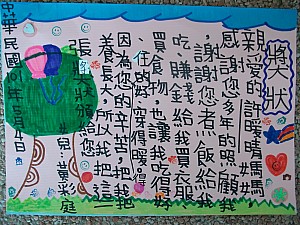 獎狀
親愛的許晴媽媽
感謝您多年的照顧我
,謝謝您煮飯給我
吃、賺錢給我買衣服、
買食物,也讓我吃得好
、住的好、穿得暖。
因為您的辛苦,把我
養長大,所以我把這一
張獎狀頒給您。
女兒:庭
中華民國101年5月4日